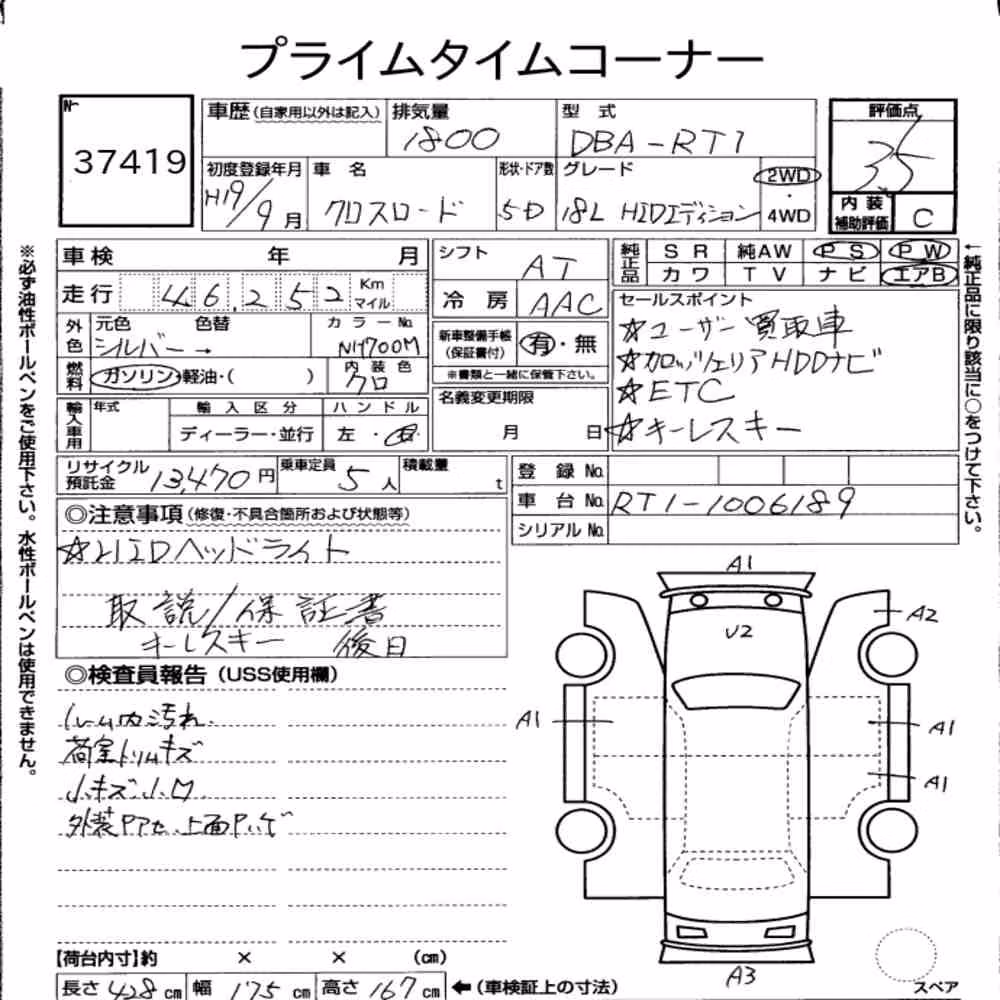 プライムタイムコーナー
No.
37419
車歴 (自家用以外は記入)
排気量
1800
型 式
DBA-RT1
評価点
3.5
初度登録年月
H19/9月
車 名
クロスロード
形状・ドア数
5D
グレード
18L HIDエディション
2WD
・
4WD
内 装
補助評価
C
車検 年 月
シフト
AT
純正品
SR 純AW PS PW
カワ TV ナビ エアB
走行 46,252 Km マイル
冷 房
AAC
セールスポイント
☆ユーザー買取車
☆カロッツェリアHDDナビ
☆ETC
☆キーレスキー
外色
元色 色替
シルバー→
カラーNo.
NH700M
新車整備手帳
(保証書付)
有・無
※書類と一緒に保管下さい。
燃料
ガソリン・軽油・( )
内 装 色
クロ
名義変更期限
月 日
輸入車用
年式
輸 入 区 分
ディーラー・並行
ハ ン ド ル
左・右
リサイクル
預託金
13,470円
乗車定員
5人
積載量
t
登 録 No.
車 台 No.
RT1-1006189
シリアル No.
◎注意事項(修復・不具合箇所および状態等)
☆HIDヘッドライト
取説/保証書
キーレスキー 後日
◎検査員報告(USS使用欄)
ルーム内汚れ.
荷室トリムキズ
小キズ.小凹
※必ず油性ボールペンをご使用下さい。水性ボールペンは使用できません。
←純正品に限り該当に○をつけて下さい。
A1
A2
U2
A1
A1
A1
A3
スペア
【荷台内寸】約 × × (cm)
長さ 428 cm 幅 175 cm 高さ 167 cm ←(車検証上の寸法)